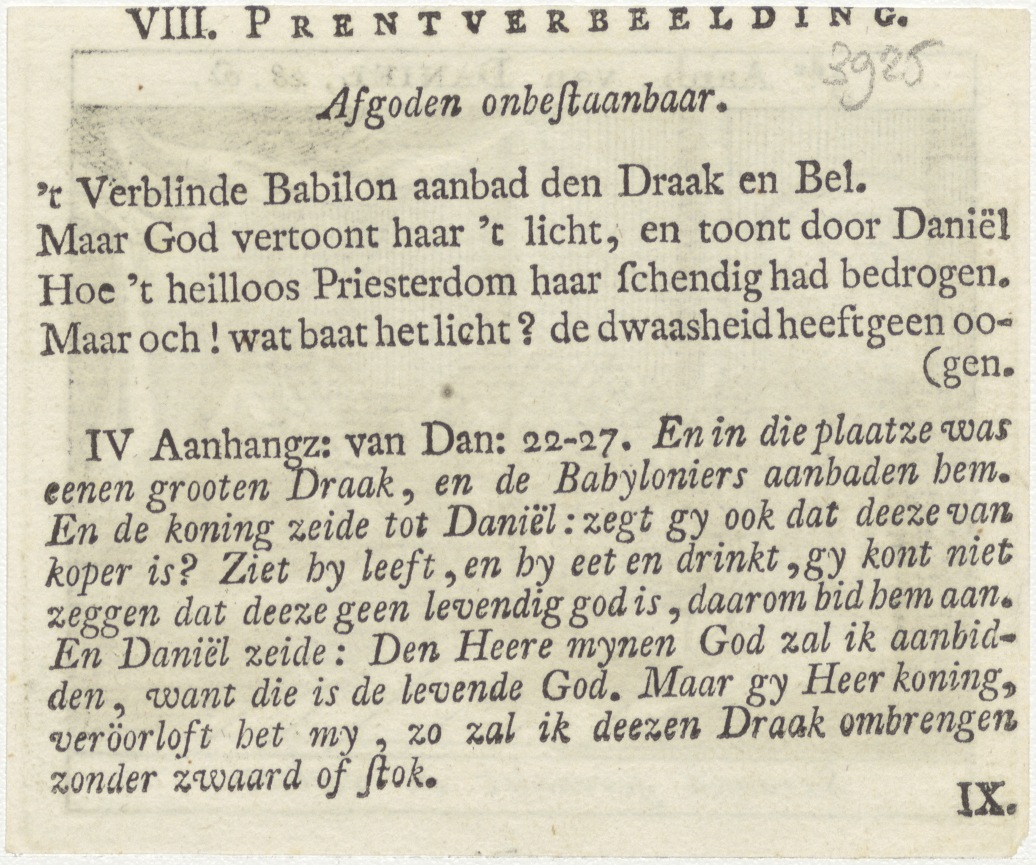 VIII. PRENTVERBEELDING.
3925
Afgoden onbeſtaanbaar.
't Verblinde Babilon aanbad den Draak en Bel.
Maar God vertoont haar 't licht, en toont door Daniël
Hoe 't heilloos Priesterdom haar ſchendig had bedrogen.
Maar och! wat baat het licht? de dwaasheid heeft geen oo-
(gen.
IV Aanhangz: van Dan: 22-27. En in die plaatze was
eenen grooten Draak, en de Babyloniers aanbaden hem.
En de koning zeide tot Daniël: zegt gy ook dat deeze van
koper is? Ziet hy leeft, en hy eet en drinkt, gy kont niet
zeggen dat deeze geen levendig god is, daarom bid hem aan.
En Daniël zeide: Den Heere mynen God zal ik aanbid-
den, want die is de levende God. Maar gy Heer koning,
veröorloft het my, zo zal ik deezen Draak ombrengen
zonder zwaard of ſtok.
IX.